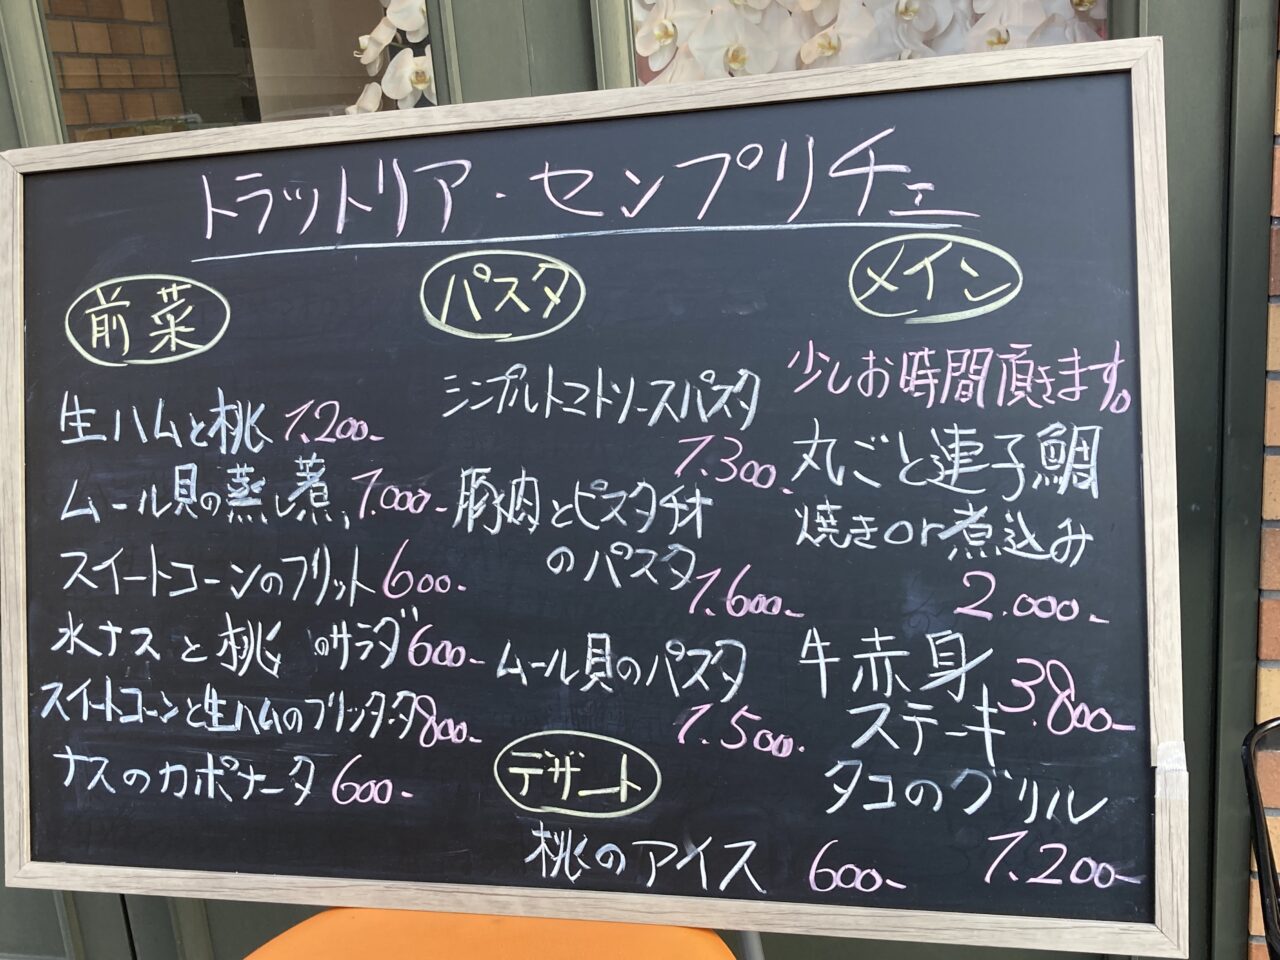 トラットリア・センプリチェ
前菜
生ハムと桃 1.200-
ムール貝の蒸し煮 1.000-
スイートコーンのフリット 600-
水ナスと桃のサラダ 600-
スイートコーンと生ハムのフリッタータ 800-
ナスのカポナータ 600-
パスタ
シンプルトマトソースパスタ
1.300-
豚肉とピスタチオ
のパスタ
1.600-
ムール貝のパスタ
1.500-
デザート
桃のアイス 600-
メイン
少しお時間頂きます。
丸ごと連子鯛
焼きor煮込み
2.000-
牛赤身
ステーキ 3.800-
タコのグリル
1.200-